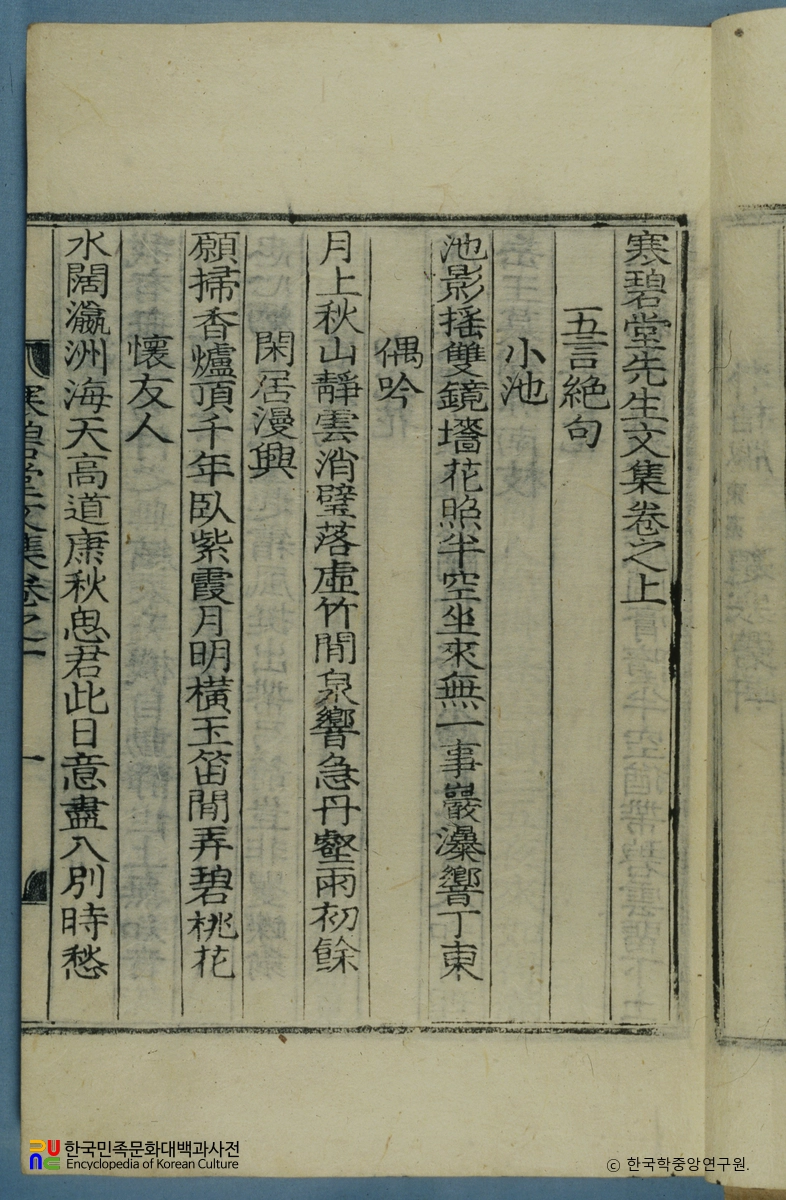 寒碧堂先生文集卷之上
五言絶句
小池
池影揺雙鏡墻花照半空坐來無一事巖瀑響丁東
偶吟
月上秋山靜雲消璧落虛竹間泉響急丹壑雨初餘
閑居漫興
願掃香爐頂千年臥紫霞月明橫玉笛閒弄碧桃花
懷友人
水闊瀛洲海天高道康秋思君此日意盡入別時愁
寒碧堂文集卷之上
一
한국민족문화대백과사전
Encyclopedia of Korean Culture
ⓒ 한국학중앙연구원.